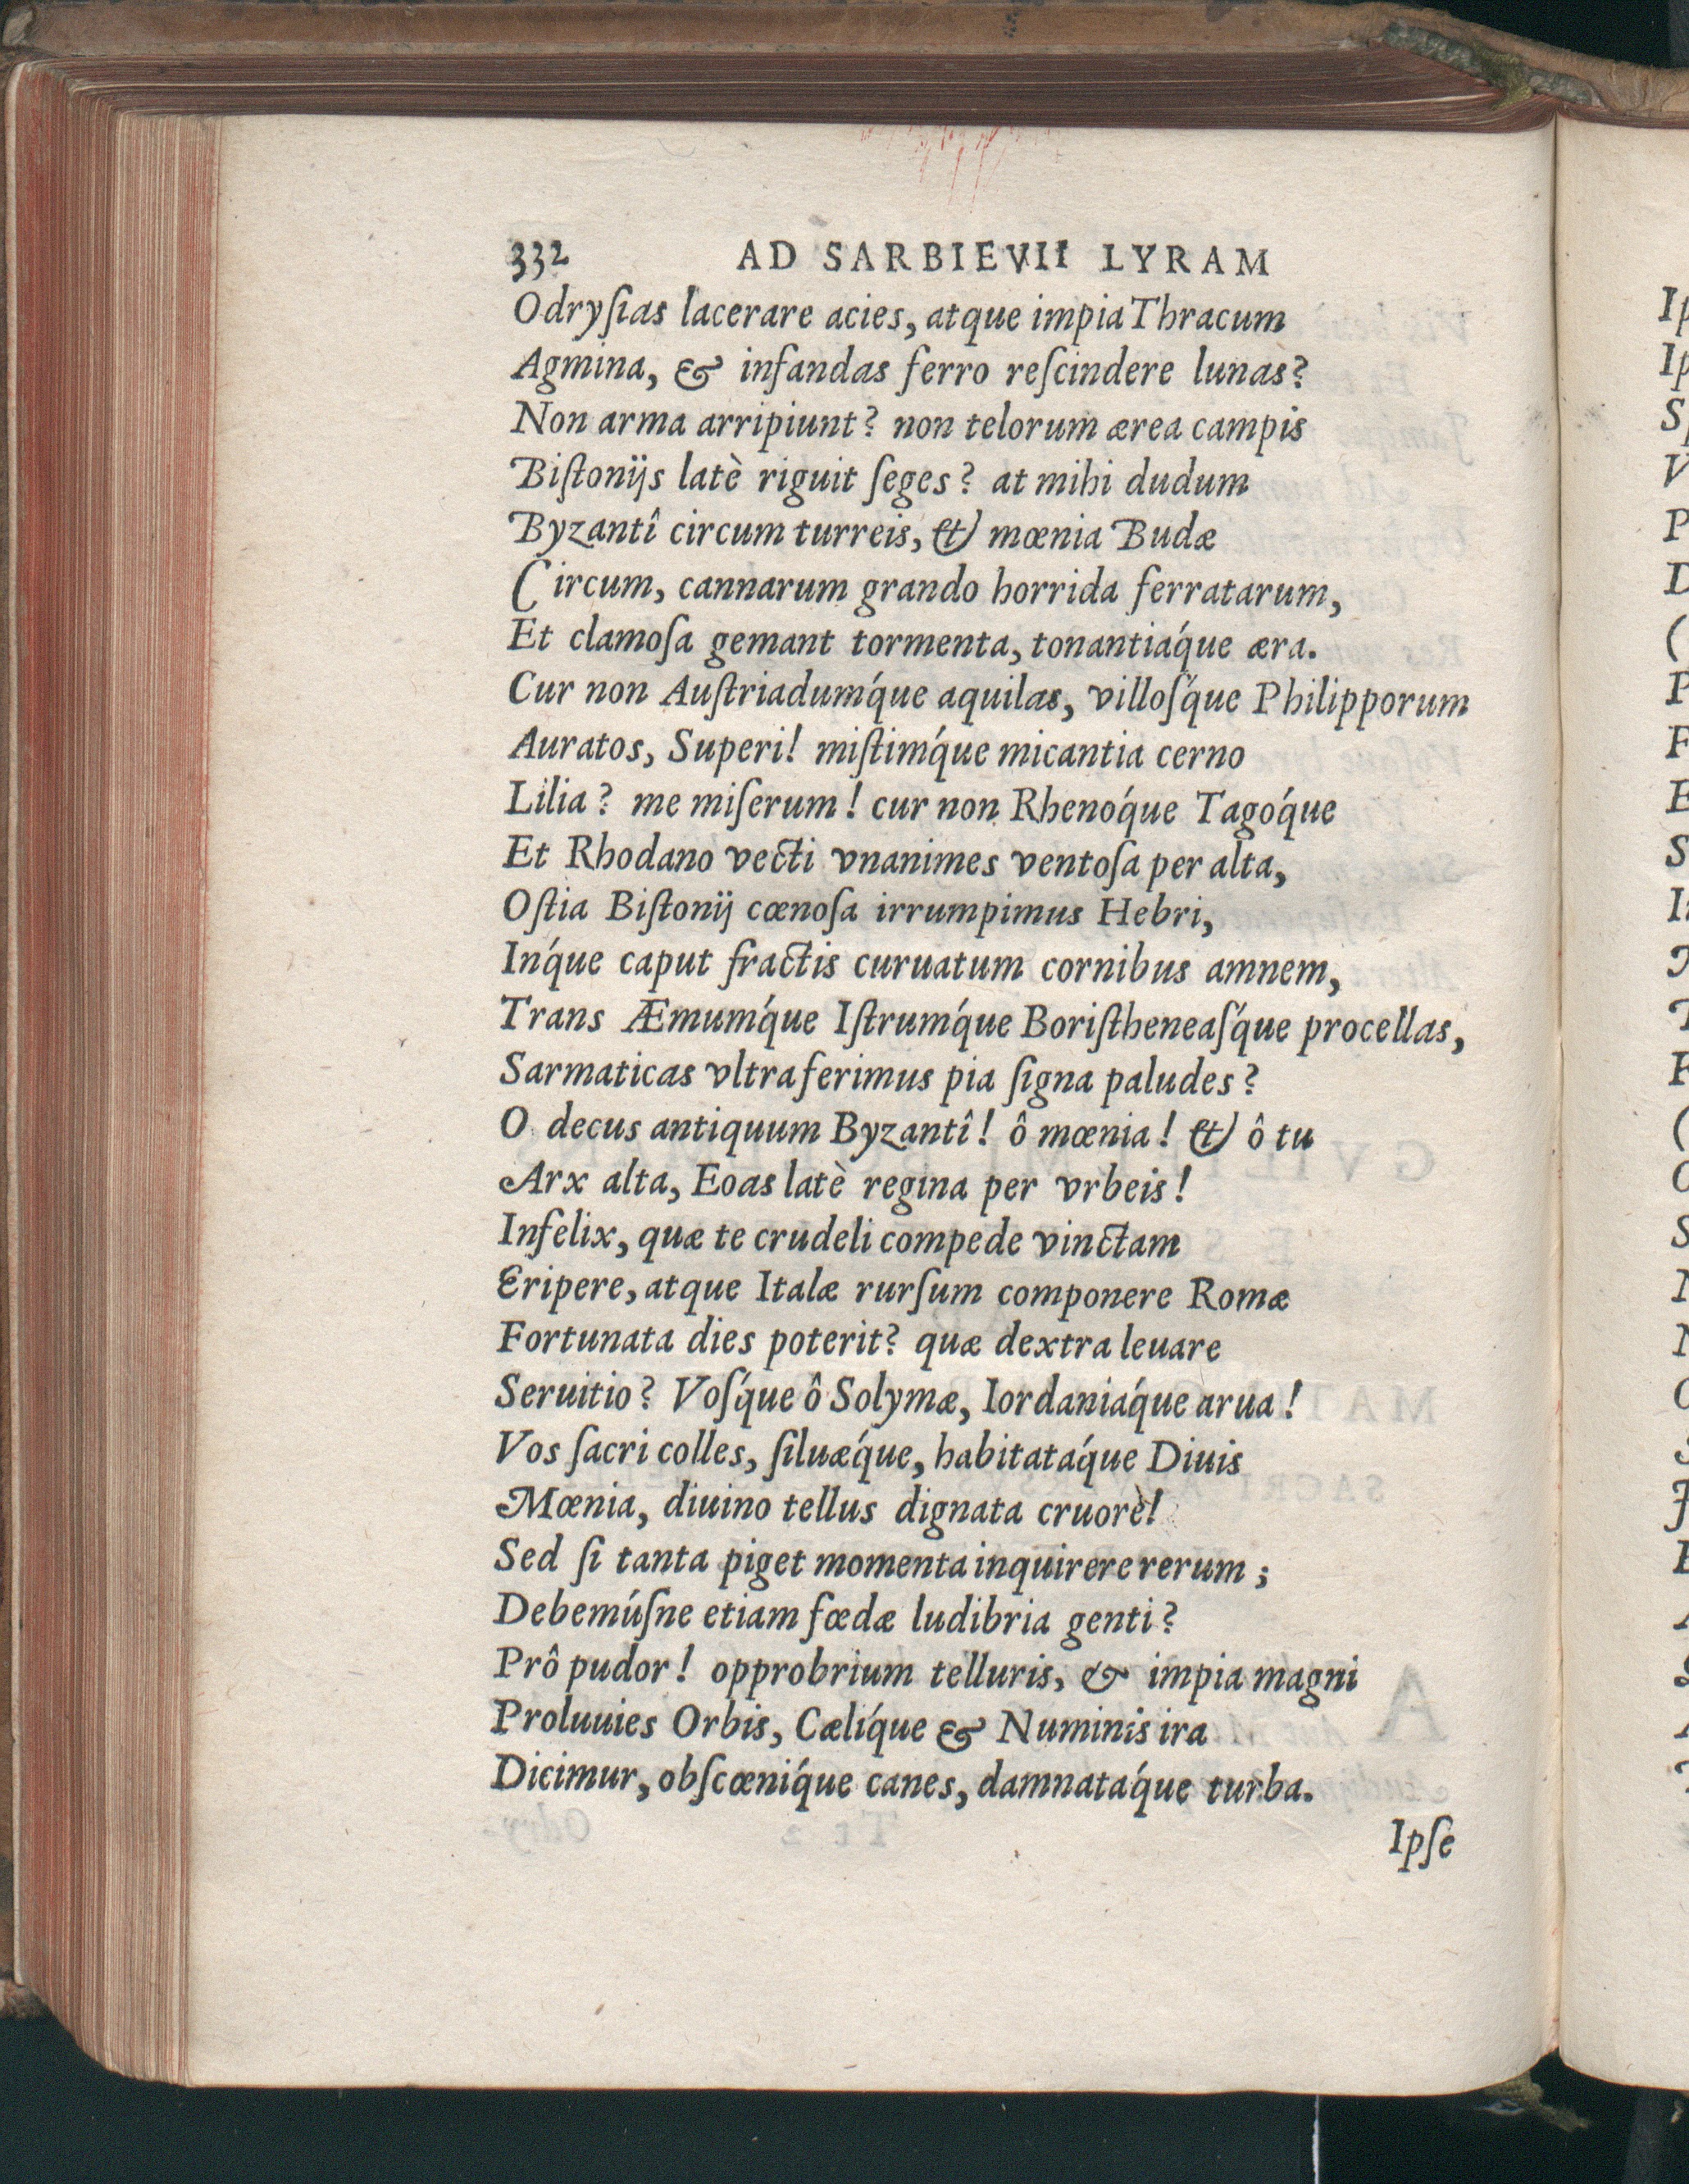 332 AD SARBIEVII LYRAM
Odryſias lacerare acies, atque impia Thracum
Agmina, & infandas ferro reſcindere lunas?
Non arma arripiunt? non telorum ærea campis
Biſtonijs latè riguit ſeges? at mihi dudum
Byzantî circum turreis, & mœnia Budæ
Circum, cannarum grando horrida ferratarum,
Et clamoſa gemant tormenta, tonantiáque æra.
Cur non Auſtriadumq́ue aquilas, villoſq́ue Philipporum
Auratos, Superi! miſtimq́ue micantia cerno
Lilia? me miſerum! cur non Rhenóque Tagóque
Et Rhodano vecti vnanimes ventoſa per alta,
Oſtia Biſtonij cœnoſa irrumpimus Hebri,
Inq́ue caput fractis curuatum cornibus amnem,
Trans Æmumq́ue Iſtrumq́ue Boriſtheneaſq́ue procellas,
Sarmaticas vltra ferimus pia ſigna paludes?
O decus antiquum Byzantî! ô mœnia! & ô tu
Arx alta, Eoas latè regina per vrbeis!
Infelix, quæ te crudeli compede vinctam
Eripere, atque Italæ rurſum componere Romæ
Fortunata dies poterit? quæ dextra leuare
Seruitio? Voſq́ue ô Solymæ, Iordaniáque arua!
Vos ſacri colles, ſiluæq́ue, habitatáque Diuis
Mœnia, diuino tellus dignata cruorè!
Sed ſi tanta piget momenta inquirere rerum;
Debemúſne etiam fœdæ ludibria genti?
Prô pudor! opprobrium telluris, & impia magni
Proluuies Orbis, Cælíque & Numinis ira
Dicimur, obſcœníque canes, damnatáque turba.
Ipſe